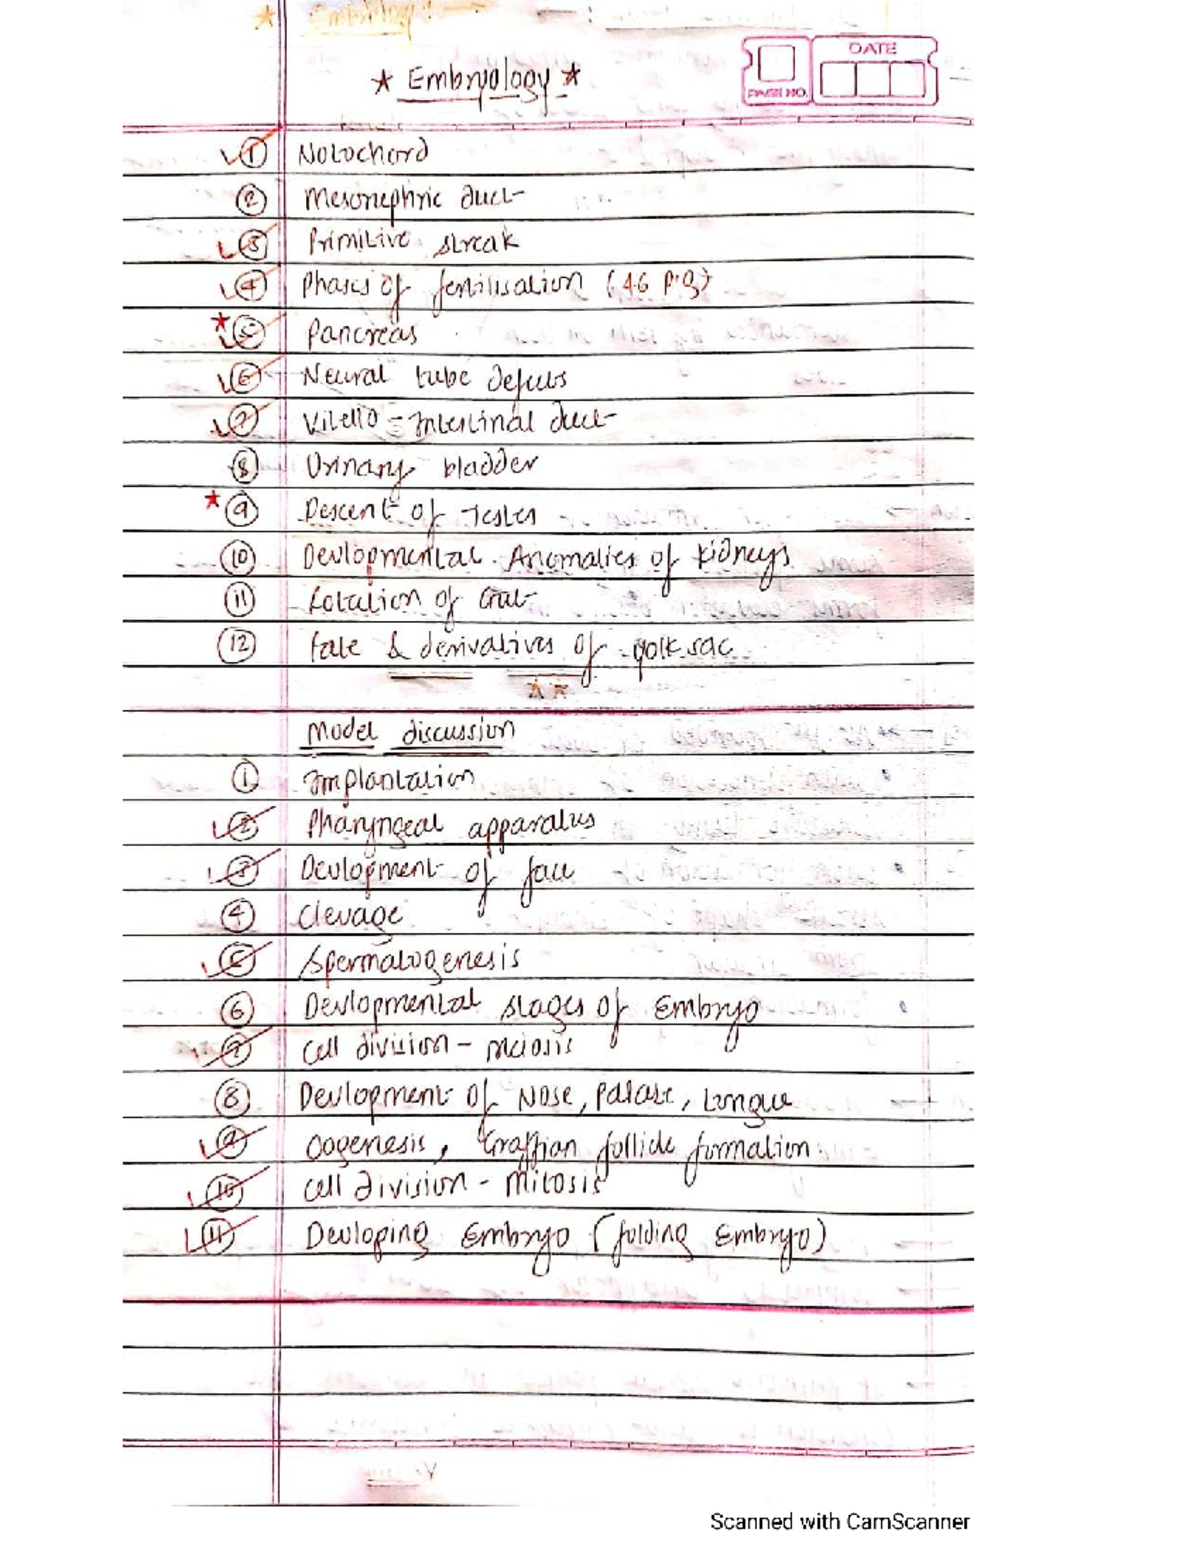 ★ Embryology ★
PAGE NO.
DATE
① Notochord
② Mesonephric duct
③ Primitive streak
④ Phases of fertilisation (46 P.g)
★ ⑤ Pancreas
⑥ Neural tube defects
⑦ Vitello-Intestinal duct
⑧ Urinary bladder
★ ⑨ Descent of Testes
⑩ Devlopmental Anomalies of kidneys
⑪ Rotation of Gut
⑫ fate & derivatives of yolk sac
★★
Model discussion
① Implantation
② Pharyngeal apparatus
③ Devlopment of face
④ Clevage
⑤ Spermatogenesis
⑥ Devlopmental stages of Embryo
⑦ Cell division - meiosis
⑧ Devlopment of Nose, Palate, Tongue
⑨ Oogenesis, Graffian follicle formation
⑩ Cell division - Mitosis
⑪ Devloping Embryo (folding Embryo)
Scanned with CamScanner